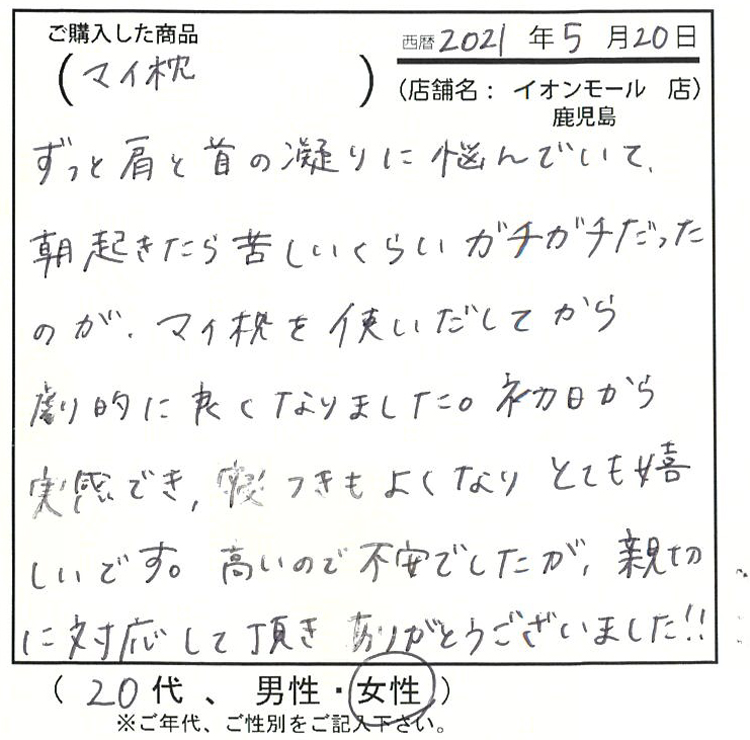 ご購入した商品
(マイ枕)
西暦2021年5月20日
(店舗名： イオンモール 店)
鹿児島
ずっと肩と首の凝りに悩んでいて、
朝起きたら苦しいくらいガチガチだった
のが、マイ枕を使いだしてから
劇的に良くなりました。初日から
実感でき,寝つきもよくなりとても嬉
しいです。高いので不安でしたが、親切
に対応して頂きありがとうございました!!
(20代、男性・女性)
※ご年代、ご性別をご記入下さい。